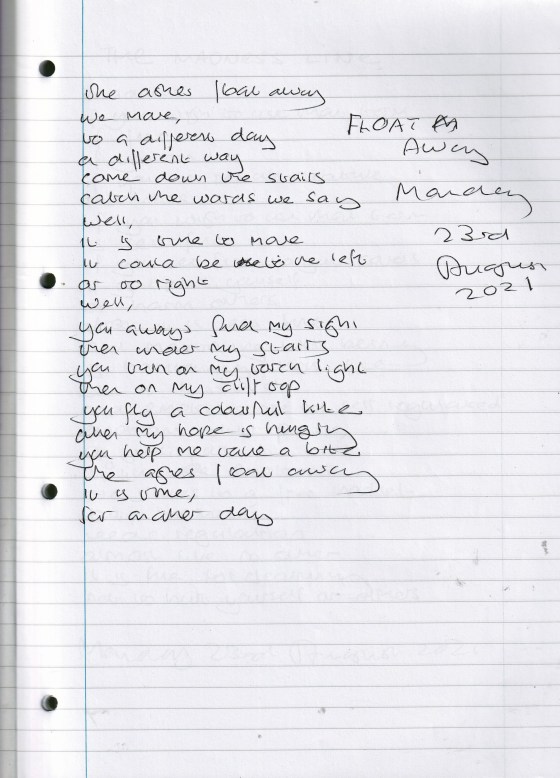 the ashes float away
we move,
to a different day
a different way
come down the stairs
catch the words we say
well,
it is time to move
it could be to the left
or to right
well,
you always find my sight
then under my stairs
you turn on my torch light
then on my cliff top
you fly a colourful kite
when my hope is hungry
you help me take a bite
the ashes float away
it is time,
for another day
FLOAT
Away
Monday
23rd
August
2021